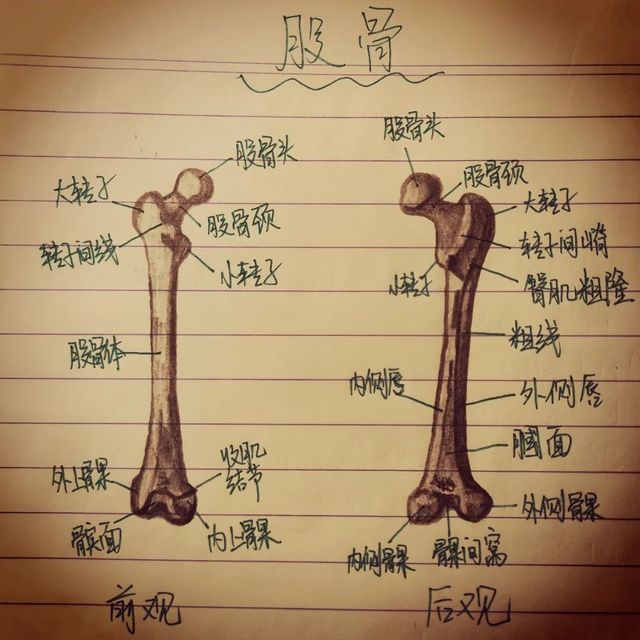 股骨
股骨头
大转子
股骨颈
转子间线
小转子
股骨体
外上髁
收肌
结节
髌面
内上髁
前观
股骨头
股骨颈
大转子
转子间嵴
小转子
臀肌粗隆
粗线
内侧唇
外侧唇
腘面
外侧髁
内侧髁
髁间窝
后观